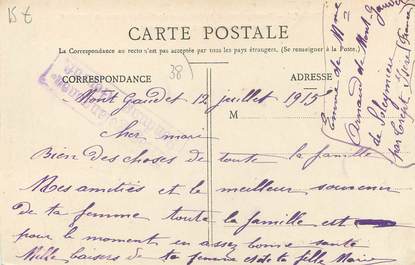 15 €
CARTE POSTALE
La Correspondance au recto n'est pas acceptée par tous les pays étrangers. (Se renseigner à la Poste.)
38
CORRESPONDANCE
ADRESSE
M
Mont Gaudet 12 juillet 1915
cher mari
Bien des choses de toute la famille
Mes amitiés et le meilleur souvenir
de ta femme toute la famille est
pour le moment en assez bonne santé
Mille baisers de ta femme et de ta fille Marie
Envoi de Mme
Armand de Mont
de Soleymieu
par Crepit Isère (France)